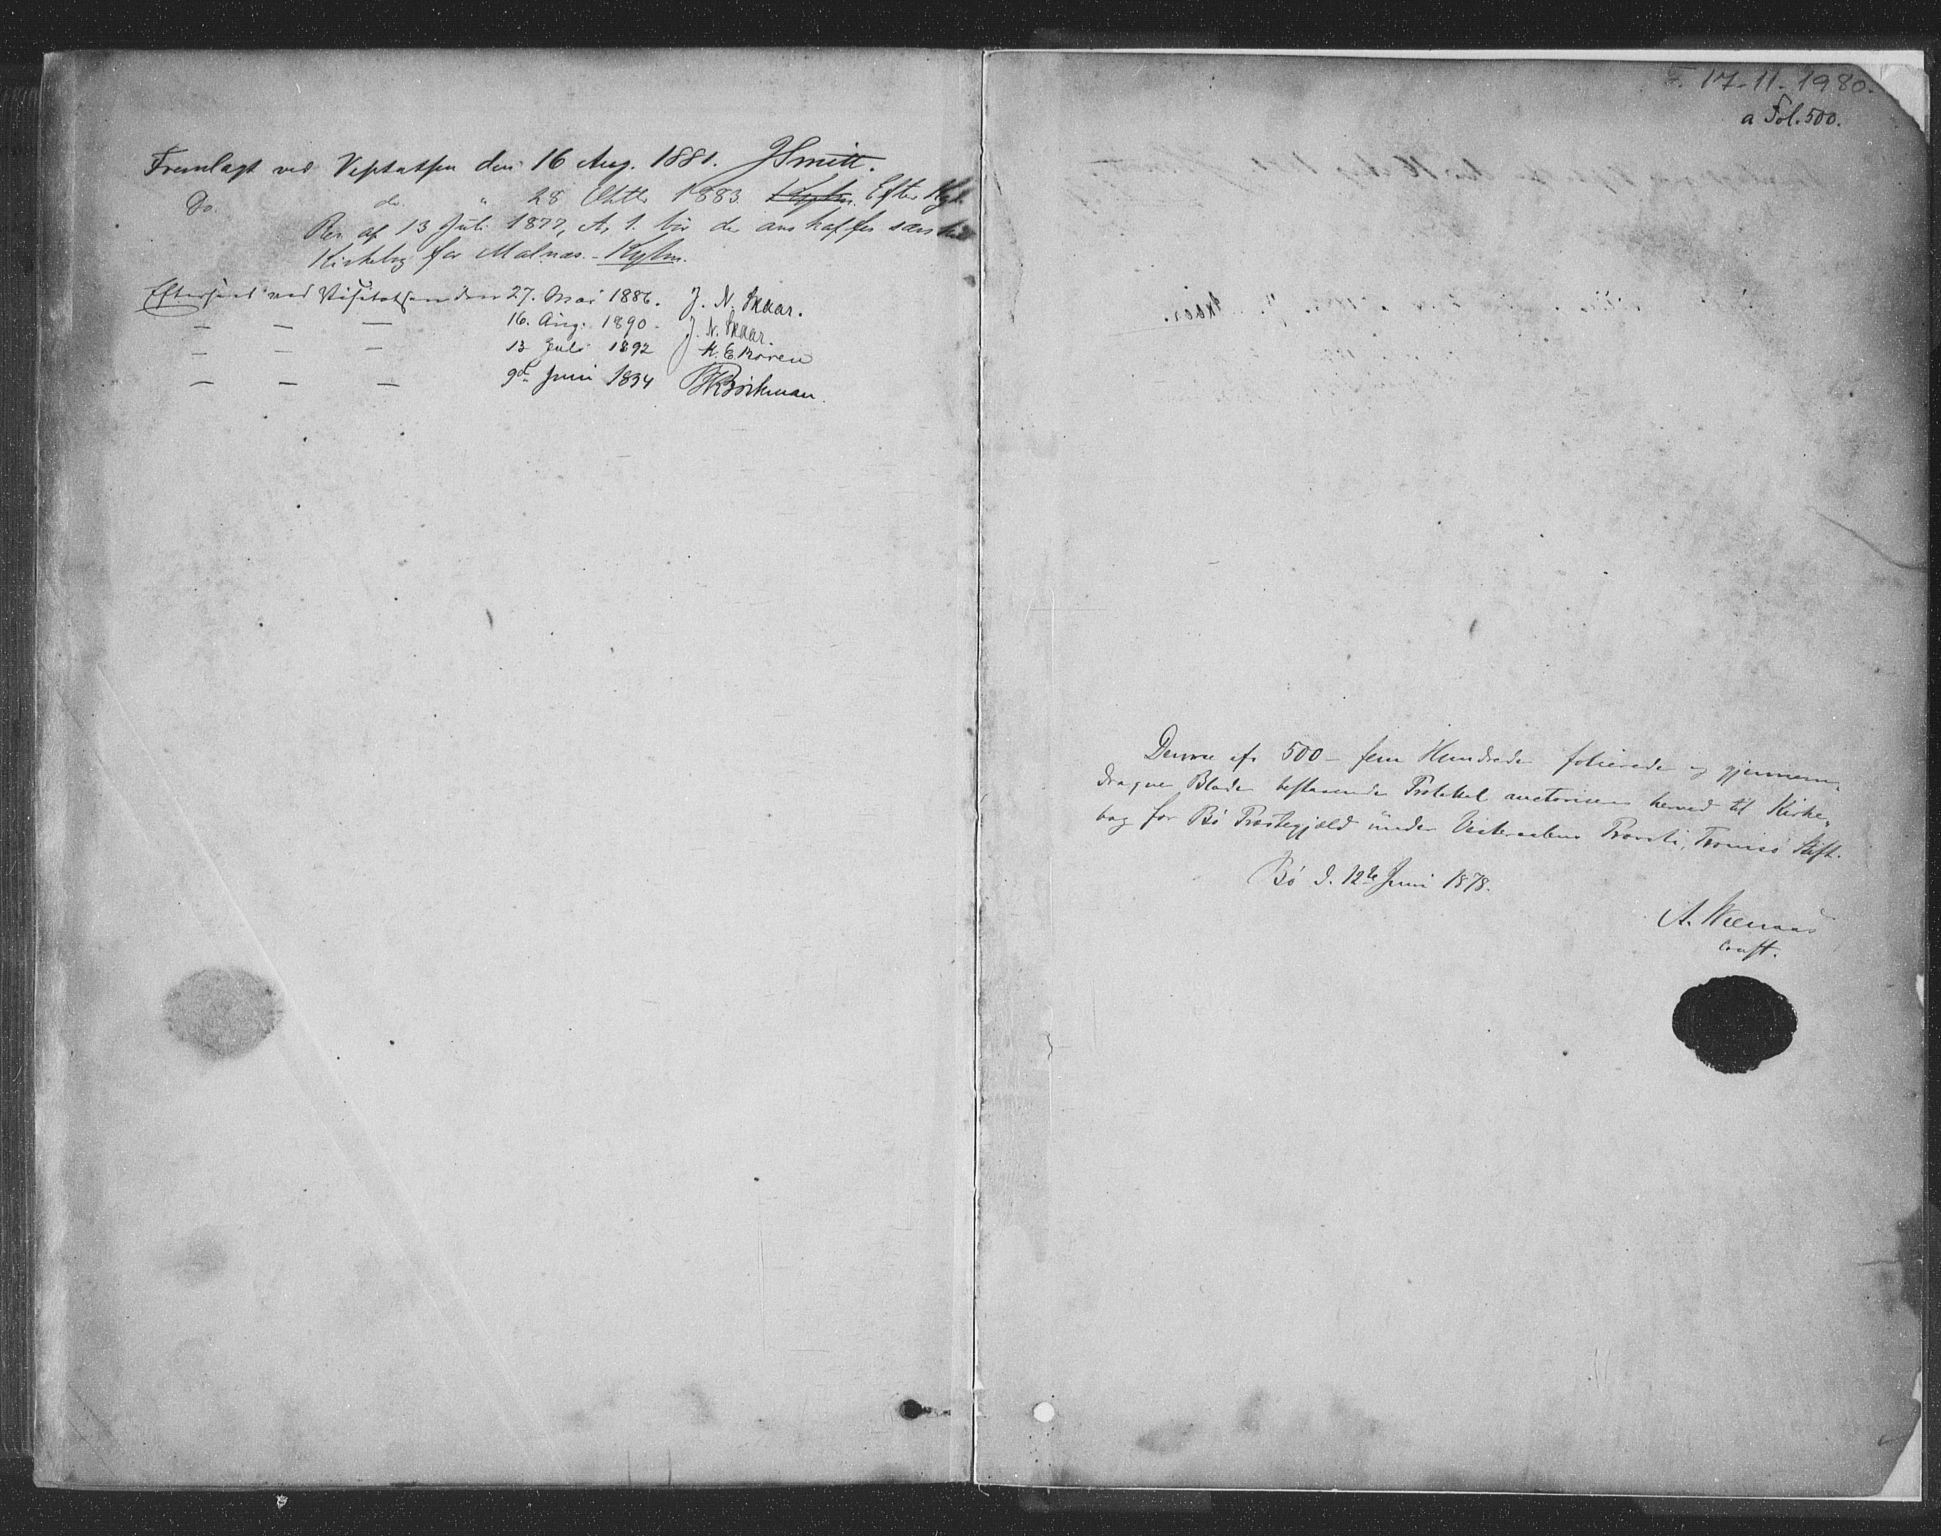 Fremlagt ved Visitatsen den 16 Aug. 1881. JSmitt.
Do. do. " 28 Oktb. 1883. Efter Kgl.
Res. af 13 Juli 1877, A, 1. bør der anskaffes særskilt
Kirkebog for Malnæs.
Efterseet ved Visitatsen den 27. Mai 1886. J. N. Skaar.
— — — 16. Aug. 1890. J. N. Skaar.
— — — 13 Juli 1892
— — — 9de Juni 1894 Bøckman.
17-11-1980.
a Fol. 500.
Denne af 500 – fem Hundrede folierede og gjennem-
dragne Blade bestaaende Protokol auctoriseres herved til Kirke-
bog for Bø Præstegjæld under Vesteraalens Provsti, Tromsø Stift.
Bø d. 12te Juni 1878.
A.
const.